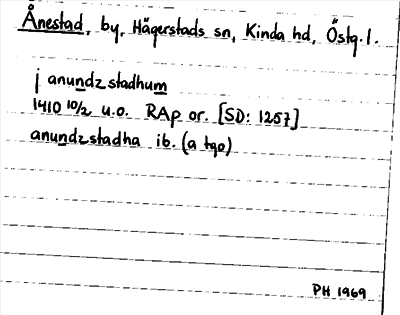 Ånestad, by, Hägerstads sn, Kinda hd, Östg.l.
j anundzstadhum
1410 10/2 u.o. RAp or. [SD: 1257]
anundzstadha ib. (a tgo)
PH 1969